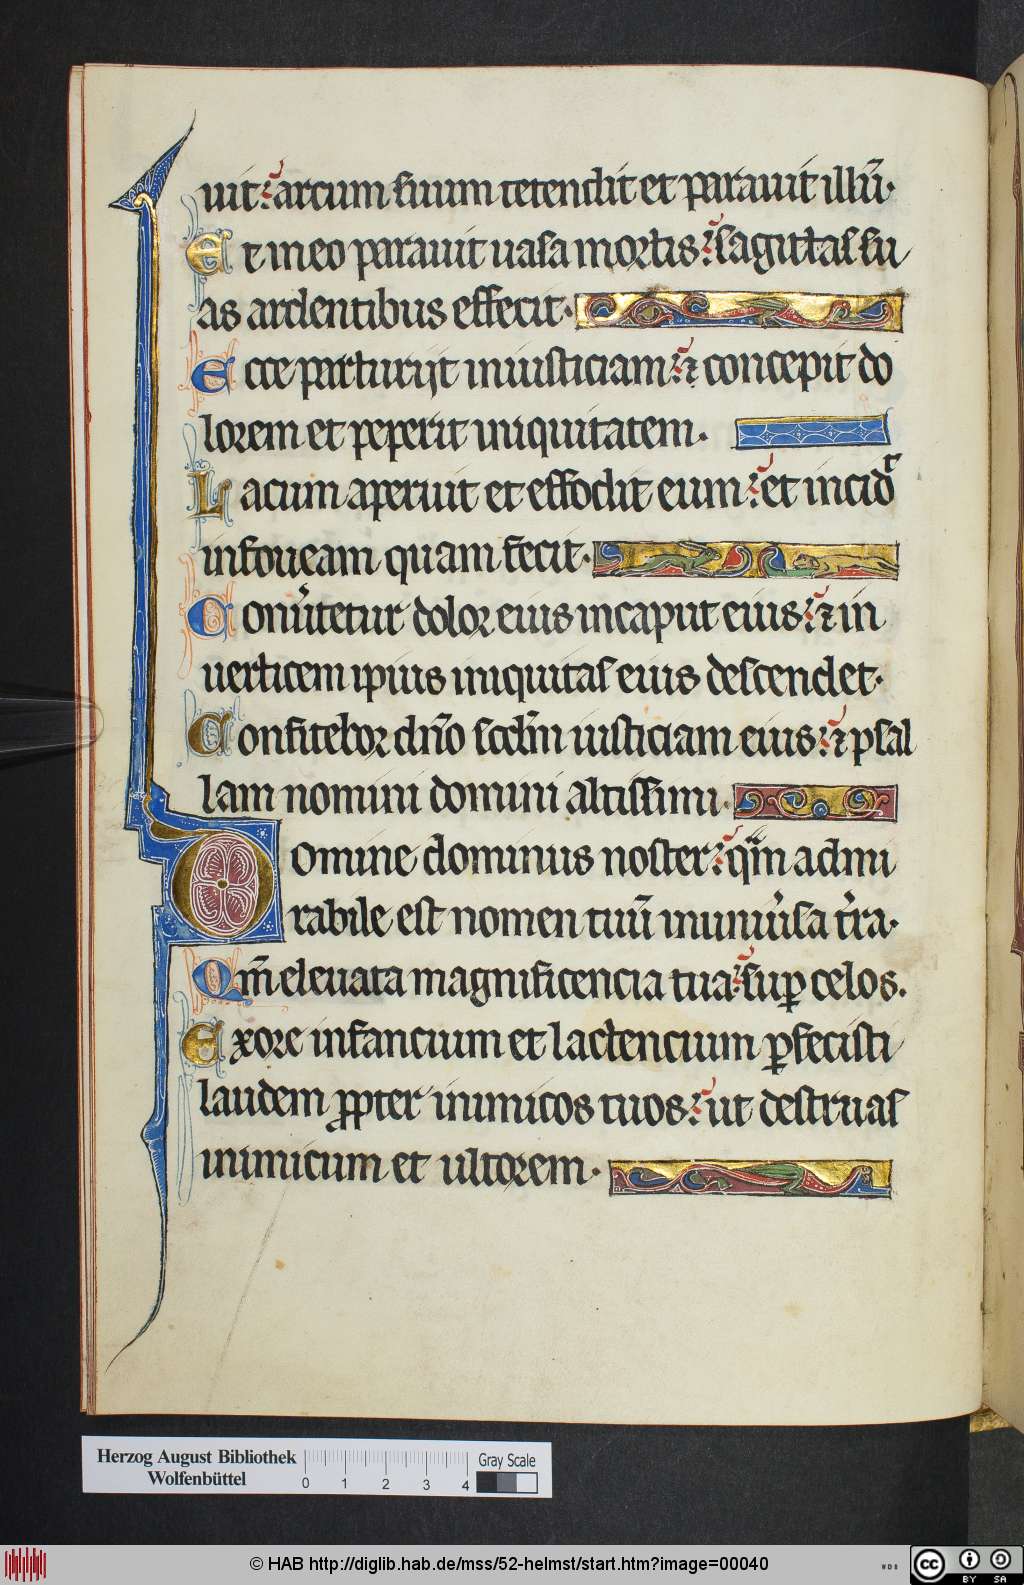 uit: arcum suum tetendit et parauit illū.
Et in eo parauit uasa mortis: sagittas su
as ardentibus effecit.
Ecce parturijt iniusticiam: ⁊ concepit do
lorem et peperit iniquitatem.
Lacum aperuit et effodit eum: et incidͣ
in foueam quam fecit.
Conu̾tetur dolor eius in caput eius: ⁊ in
uerticem ipius iniquitas eius descendet.
Confitebor dn̄o scd̄m iusticiam eius: ⁊ psal
lam nomini domini altissimi.
Domine dominus noster: qm̄ admi
rabile est nomen tuū in uniu̾sa t̾ra.
Qm̄ eleuata magnificencia tua: suꝑ celos.
Ex ore infancium et lactencium ꝑfecisti
laudem ꝓpter inimicos tuos: ut destruas
inimicum et ultorem.
Herzog August Bibliothek
Wolfenbüttel
0 1 2 3 4
Gray Scale
© HAB http://diglib.hab.de/mss/52-helmst/start.htm?image=00040
WDB
cc BY SA